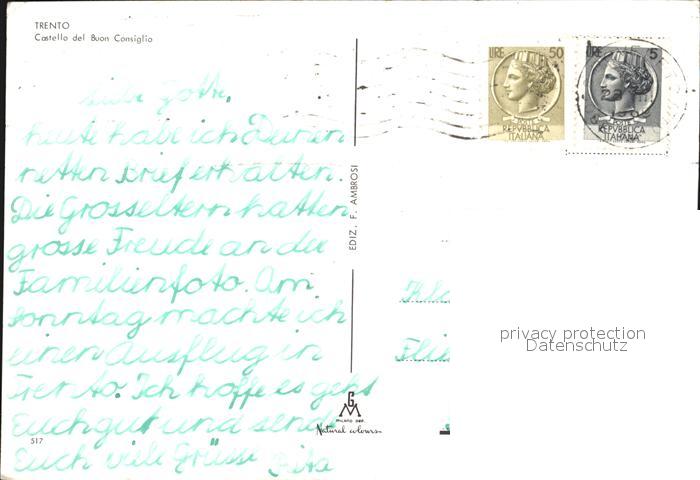 TRENTO
Castello del Buon Consiglio
LIRE 50
POSTE
REPVBBLICA
ITALIANA
LIRE 5
POSTE
REPVBBLICA
ITALIANA
Liebe Lotte,
heute habe ich Deinen
netten Brief erhalten.
Die Grosseltern hatten
grosse Freude an der
Familienfoto. Am
Sonntag machte ich
einen Ausflug in
Trento. Ich hoffe es geht
Euch gut und sende
Euch viele Grüsse Rita
EDIZ. F. AMBROSI
517
G M
MILANO DEP.
Natural colours
privacy protection
Datenschutz